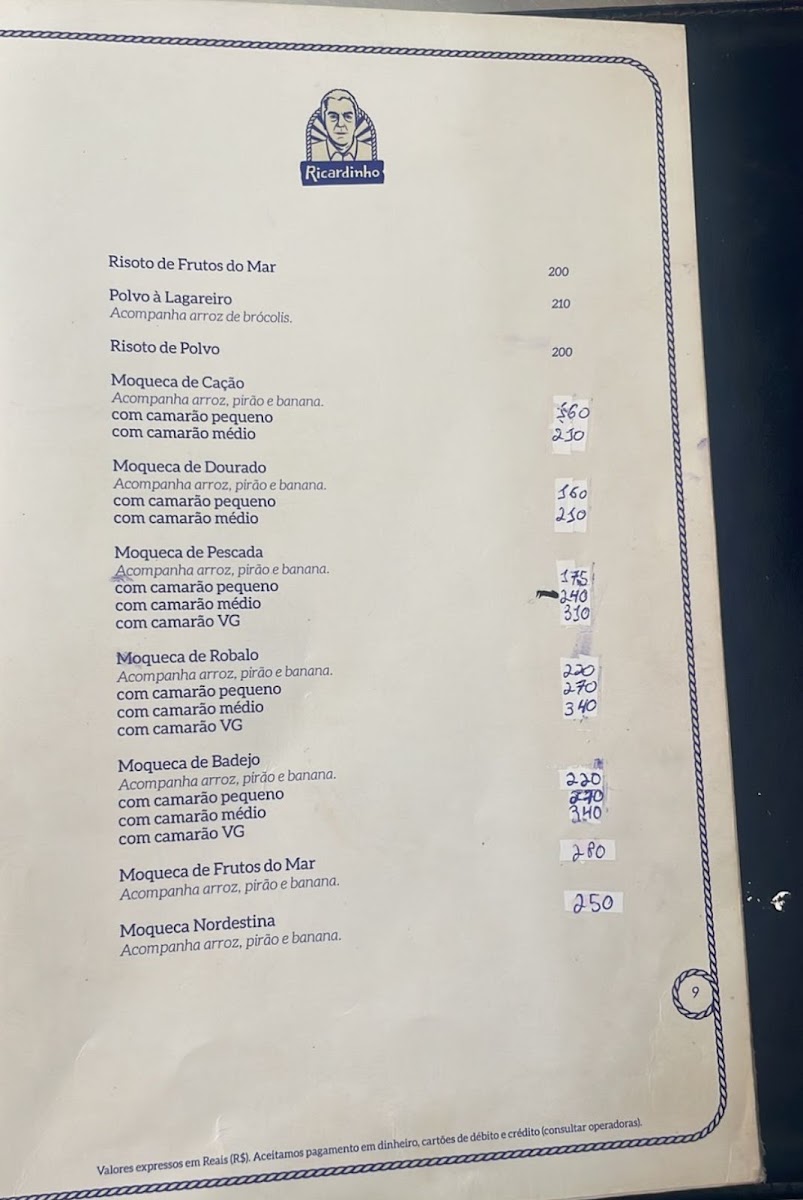 Ricardinho
Risoto de Frutos do Mar 200
Polvo à Lagareiro 210
Acompanha arroz de brócolis.
Risoto de Polvo 200
Moqueca de Cação
Acompanha arroz, pirão e banana.
com camarão pequeno 160
com camarão médio 210
Moqueca de Dourado
Acompanha arroz, pirão e banana.
com camarão pequeno 160
com camarão médio 210
Moqueca de Pescada
Acompanha arroz, pirão e banana.
com camarão pequeno 175
com camarão médio 240
com camarão VG 310
Moqueca de Robalo
Acompanha arroz, pirão e banana.
com camarão pequeno 220
com camarão médio 270
com camarão VG 340
Moqueca de Badejo
Acompanha arroz, pirão e banana.
com camarão pequeno 220
com camarão médio 270
com camarão VG 340
Moqueca de Frutos do Mar 280
Acompanha arroz, pirão e banana.
Moqueca Nordestina 250
Acompanha arroz, pirão e banana.
9
Valores expressos em Reais (R$). Aceitamos pagamento em dinheiro, cartões de débito e crédito (consultar operadoras).